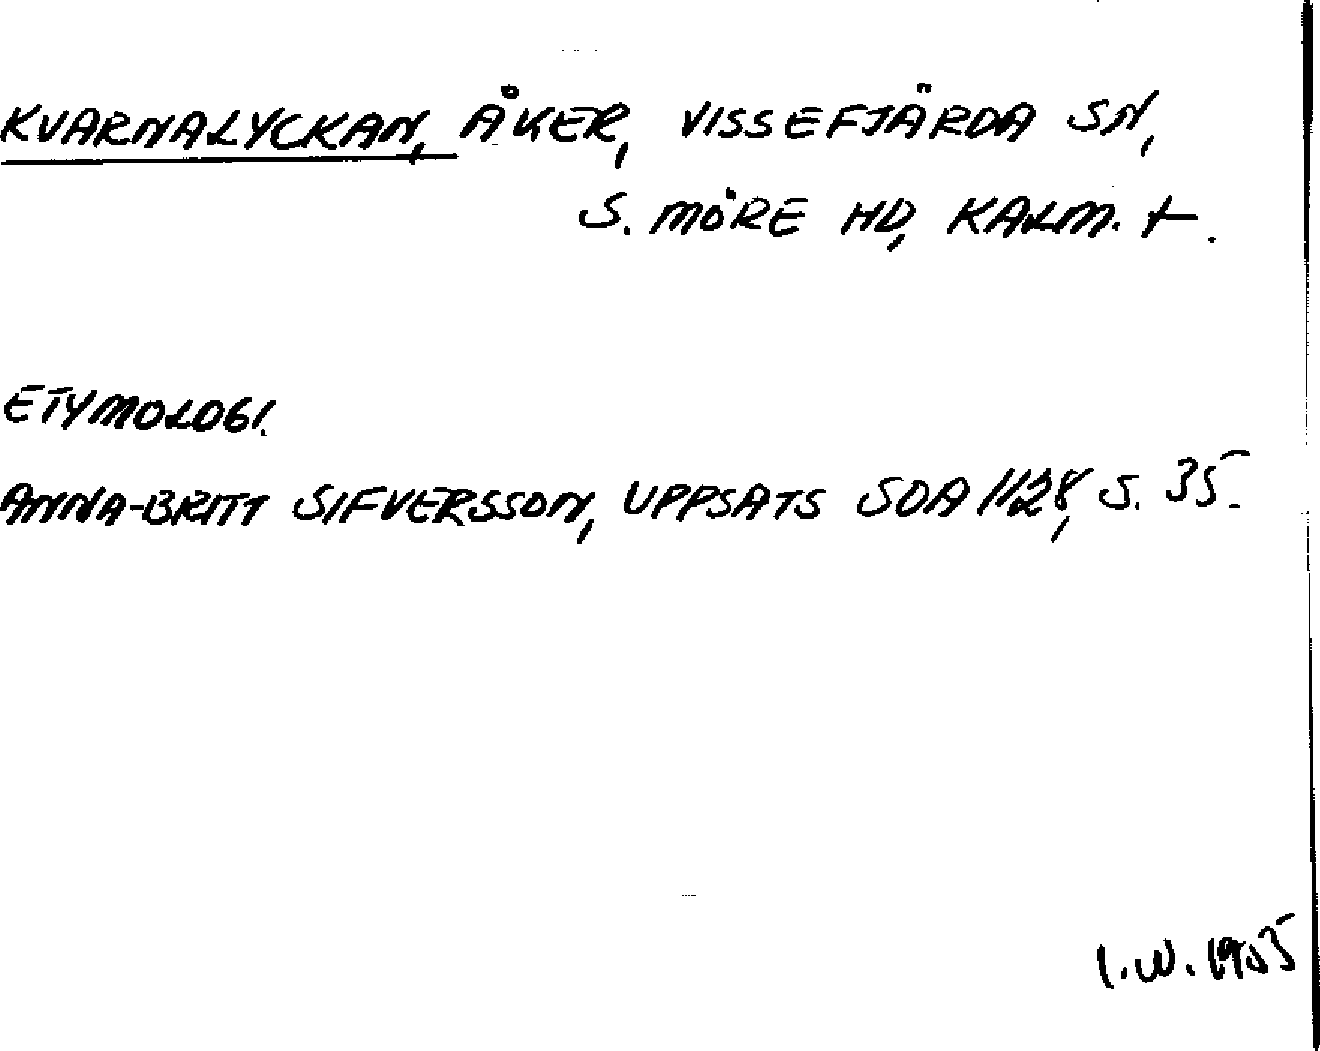 KVARNALYCKAN, ÅKER, VISSEFJÄRDA SN,
S. MÖRE HD, KALM. L.
ETYMOLOGI.
ANNA-BRITT SIFVERSSON, UPPSATS SOA 1128, S. 35.
I.W. 1955